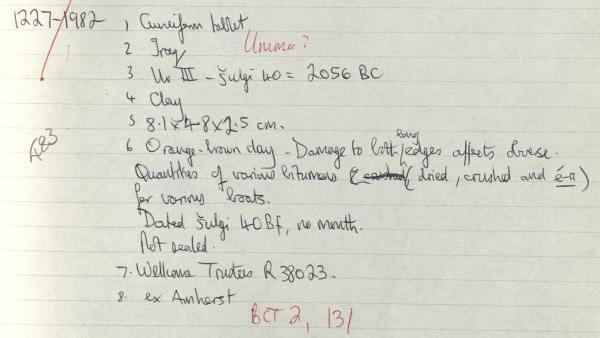 1227-1982 1 Cuneiform tablet
2 Iraq Umma?
3 Ur III - Šulgi 40 = 2056 BC
4 Clay
5 8.1 x 4.8 x 2.5 cm.
A83
6 Orange-brown clay - Damage to both long edges affects obverse.
Quantities of various bitumens (dried, crushed and é-a)
for various boats.
Dated Šulgi 40Bf, no month.
Not sealed.
7. Wellcome Trustees R 38023.
8. ex Amherst
BCT 2, 131